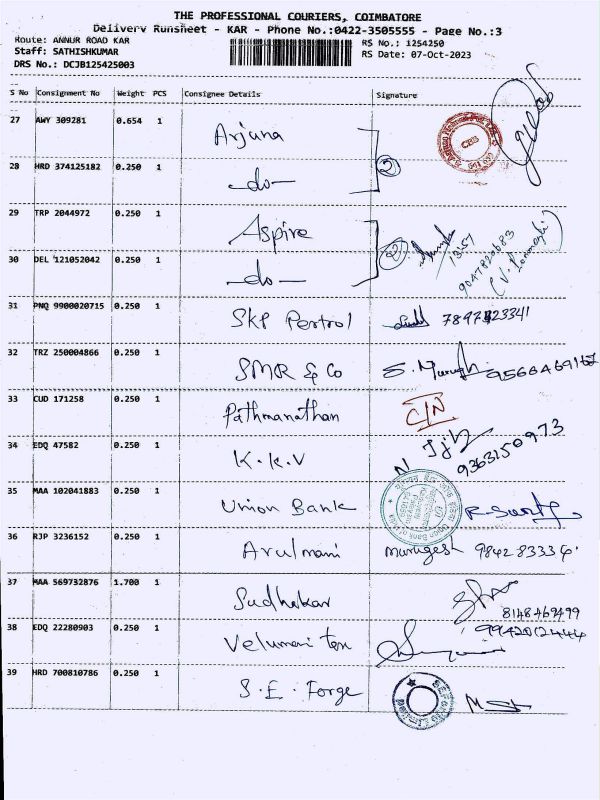 THE PROFESSIONAL COURIERS, COIMBATORE
Delivery Runsheet - KAR - Phone No.:0422-3505555 - Page No.:3
Route: ANNUR ROAD KAR
RS No.: 1254250
Staff: SATHISHKUMAR
RS Date: 07-Oct-2023
DRS No.: DCJB125425003
S No Consignment No Weight PCS Consignee Details Signature
27 AWY 309281 0.654 1 Arjuna
28 HRD 374125182 0.250 1 -do- 2
29 TRP 2044972 0.250 1 Aspire 13:57 9047820683
30 DEL 121052042 0.250 1 -do- 2
31 PNQ 9900020715 0.250 1 SKP Pertrol
32 TRZ 250004866 0.250 1 SMR & Co
33 CUD 171258 0.250 1 Pathmanathan C/N
34 EDQ 47582 0.250 1 K.K.V 9363150973
35 MAA 102041883 0.250 1 Union Bank
36 RJP 3236152 0.250 1 Arulmani murugesh 9842833334
37 MAA 569732876 1.700 1 Sudhakar 8148469499
38 EDQ 22280903 0.250 1 Velumani Tex 9942012444
39 HRD 700810786 0.250 1 S.E. Forge